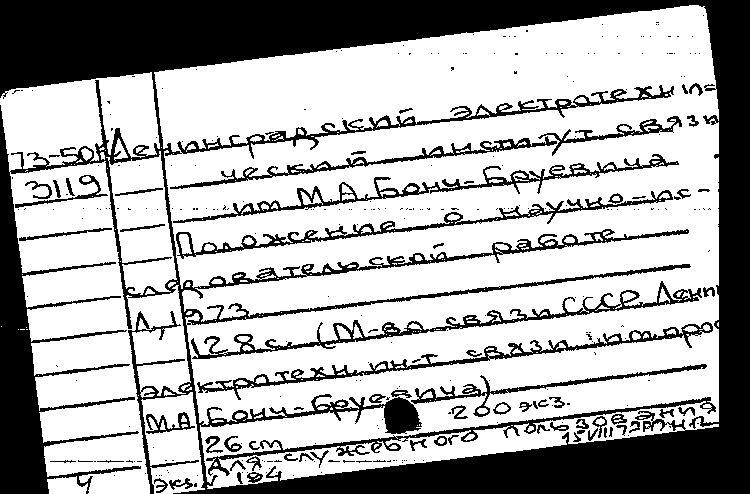 73-50К Ленинградский электротехни=
3119 ческий институт связи
им М.А.Бонч=Бруевича
Положение о научно=ис-
следовательской работе.
Л, 1973.
128с. (М-во связи СССР. Ленин
электротехн. ин-т связи им. про
М.А.Бонч=Бруевича)
200экз.
26cm
Для служебного пользования
15 VIII 73
4 экз. N 194